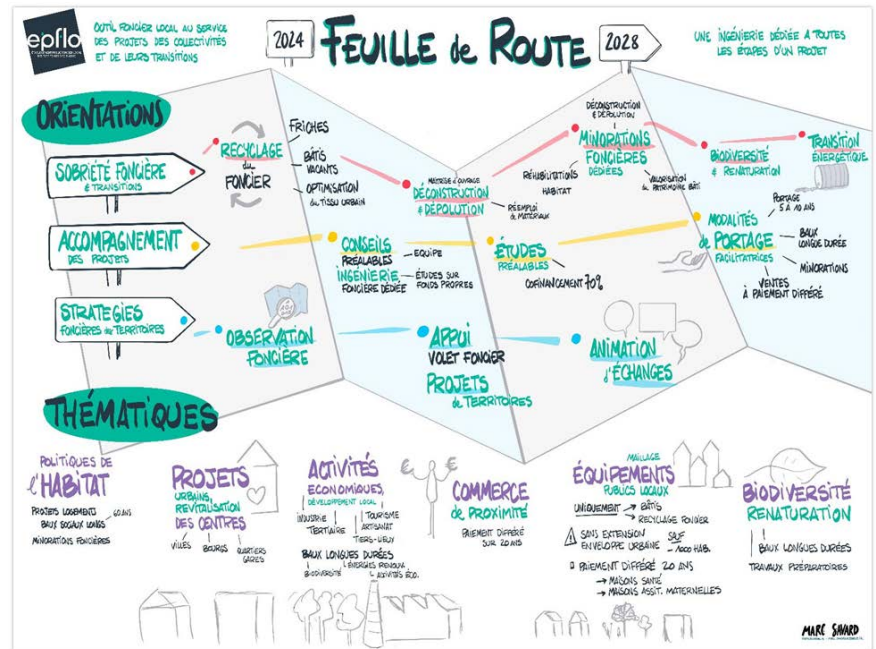 epflo
OUTIL FONCIER LOCAL AU SERVICE
DES PROJETS DES COLLECTIVITÉS
ET DE LEURS TRANSITIONS
2024
FEUILLE de ROUTE
2028
UNE INGÉNIERIE DÉDIÉE A TOUTES
LES ÉTAPES D'UN PROJET
ORIENTATIONS
SOBRIÉTÉ FONCIÈRE
& TRANSITIONS
RECYCLAGE
du
FONCIER
FRICHES
BÂTIS
VACANTS
OPTIMISATION
du TISSU URBAIN
MAITRISE d'OUVRAGE
DÉCONSTRUCTION
& DÉPOLUTION
RÉEMPLOI
de MATÉRIAUX
DÉCONSTRUCTION
& DÉPOLUTION
MINORATIONS
FONCIÈRES
DÉDIÉES
RÉHABILITATIONS
HABITAT
VALORISATION
du PATRIMOINE BÂTI
BIODIVERSITÉ
& RENATURATION
TRANSITION
ÉNERGÉTIQUE
ACCOMPAGNEMENT
DES PROJETS
CONSEILS
PRÉALABLES
EQUIPE
INGÉNIERIE
FONCIÈRE DÉDIÉE
ÉTUDES SUR
FONDS PROPRES
ÉTUDES
PRÉALABLES
COFINANCEMENT 70%
MODALITÉS
de PORTAGE
FACILITATRICES
PORTAGE
5 À 10 ANS
BAUX
LONGUE DURÉE
MINORATIONS
VENTES
À PAIEMENT DIFFÉRÉ
STRATEGIES
FONCIÈRES de TERRITOIRES
OBSERVATION
FONCIÈRE
APPUI
VOLET FONCIER
PROJETS
de TERRITOIRES
ANIMATION
d'ÉCHANGES
THÉMATIQUES
POLITIQUES DE
l'HABITAT
PROJETS LOGEMENTS
BAUX SOCIAUX LONGS
60 ANS
MINORATIONS FONCIÈRES
PROJETS
URBAINS,
REVITALISATION
DES CENTRES
VILLES
BOURGS
QUARTIERS
GARES
ACTIVITÉS
ECONOMIQUES,
DÉVELOPPEMENT LOCAL
INDUSTRIE
TERTIAIRE
TOURISME
ARTISANAT
TIERS-LIEUX
BAUX LONGUES DURÉES
BIODIVERSITÉ
ÉNERGIES RENOUV.
ACTIVITÉS ÉCO.
COMMERCE
de PROXIMITÉ
PAIEMENT DIFFÉRÉ
SUR 20 ANS
MAILLAGE
ÉQUIPEMENTS
PUBLICS LOCAUX
UNIQUEMENT → BÂTIS
→ RECYCLAGE FONCIER
SANS EXTENSION
ENVELOPPE URBAINE
SAUF
- 1000 HAB.
PAIEMENT DIFFÉRÉ 20 ANS
→ MAISONS SANTÉ
→ MAISONS ASSIT. MATERNELLES
BIODIVERSITÉ
RENATURATION
BAUX LONGUES DURÉES
TRAVAUX PRÉPARATOIRES
MARC SAVARD